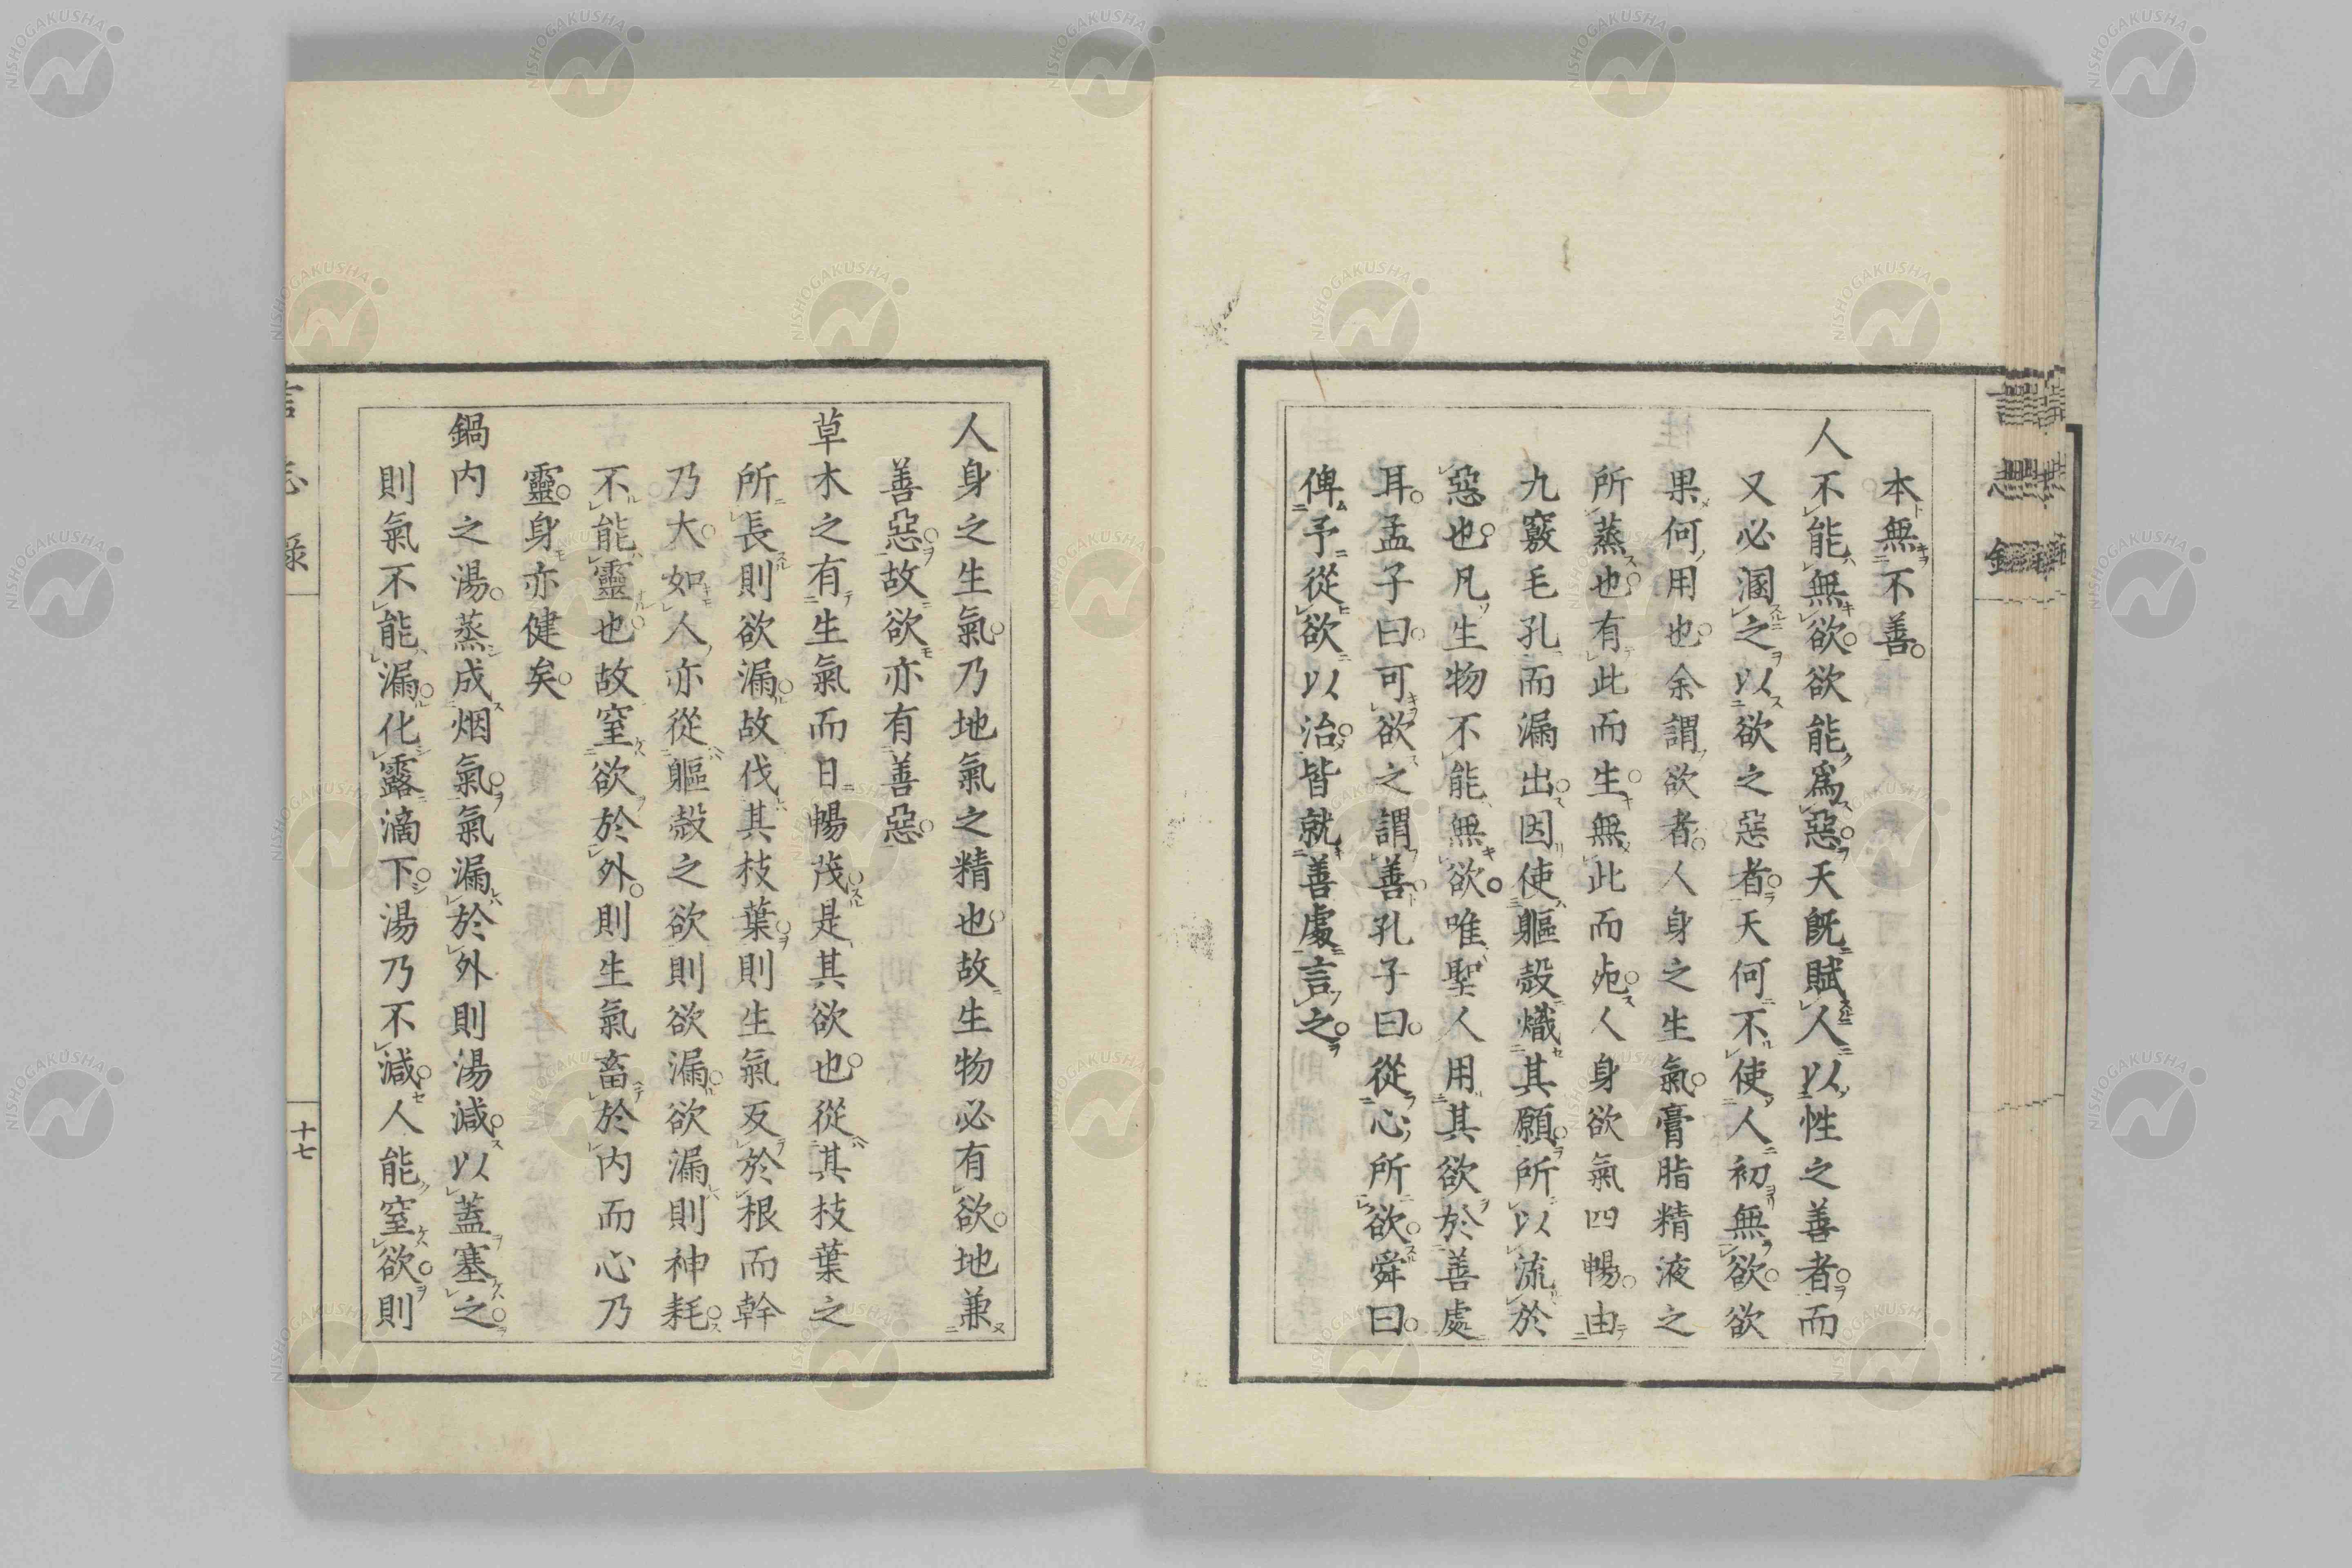 本無不善
人不能無欲欲能爲惡天既賦人以性之善者而
又必溷之以欲之惡者天何不使人初無欲欲
果何用也余謂欲者人身之生氣膏脂精液之
所蒸也有此而生無此而死人身欲氣四暢由
九竅毛孔而漏出因使軀殼熾其願所以流於
惡也凡生物不能無欲唯聖人用其欲於善處
耳孟子曰可欲之謂善孔子曰從心所欲舜曰
俾予從欲以治皆就善處言之
人身之生氣乃地氣之精也故生物必有欲地兼
善惡故欲亦有善惡
草木之有生氣而日暢茂是其欲也從其枝葉之
所長則欲漏故伐其枝葉則生氣反於根而幹
乃大如人亦從軀殼之欲則欲漏欲漏則神耗
不能靈也故窒欲於外則生氣畜於內而心乃
靈身亦健矣
鍋內之湯蒸成烟氣氣漏於外則湯減以蓋塞之
則氣不能漏化露滴下湯乃不減人能窒欲則
言志錄
十七
NISHOGAKUSHA